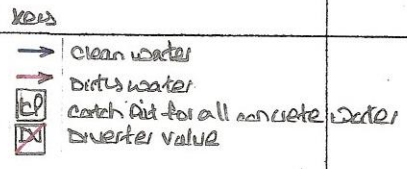 Keys
Clean water
Dirty water
CP Catch Pit for all concrete water
DV Diverter valve